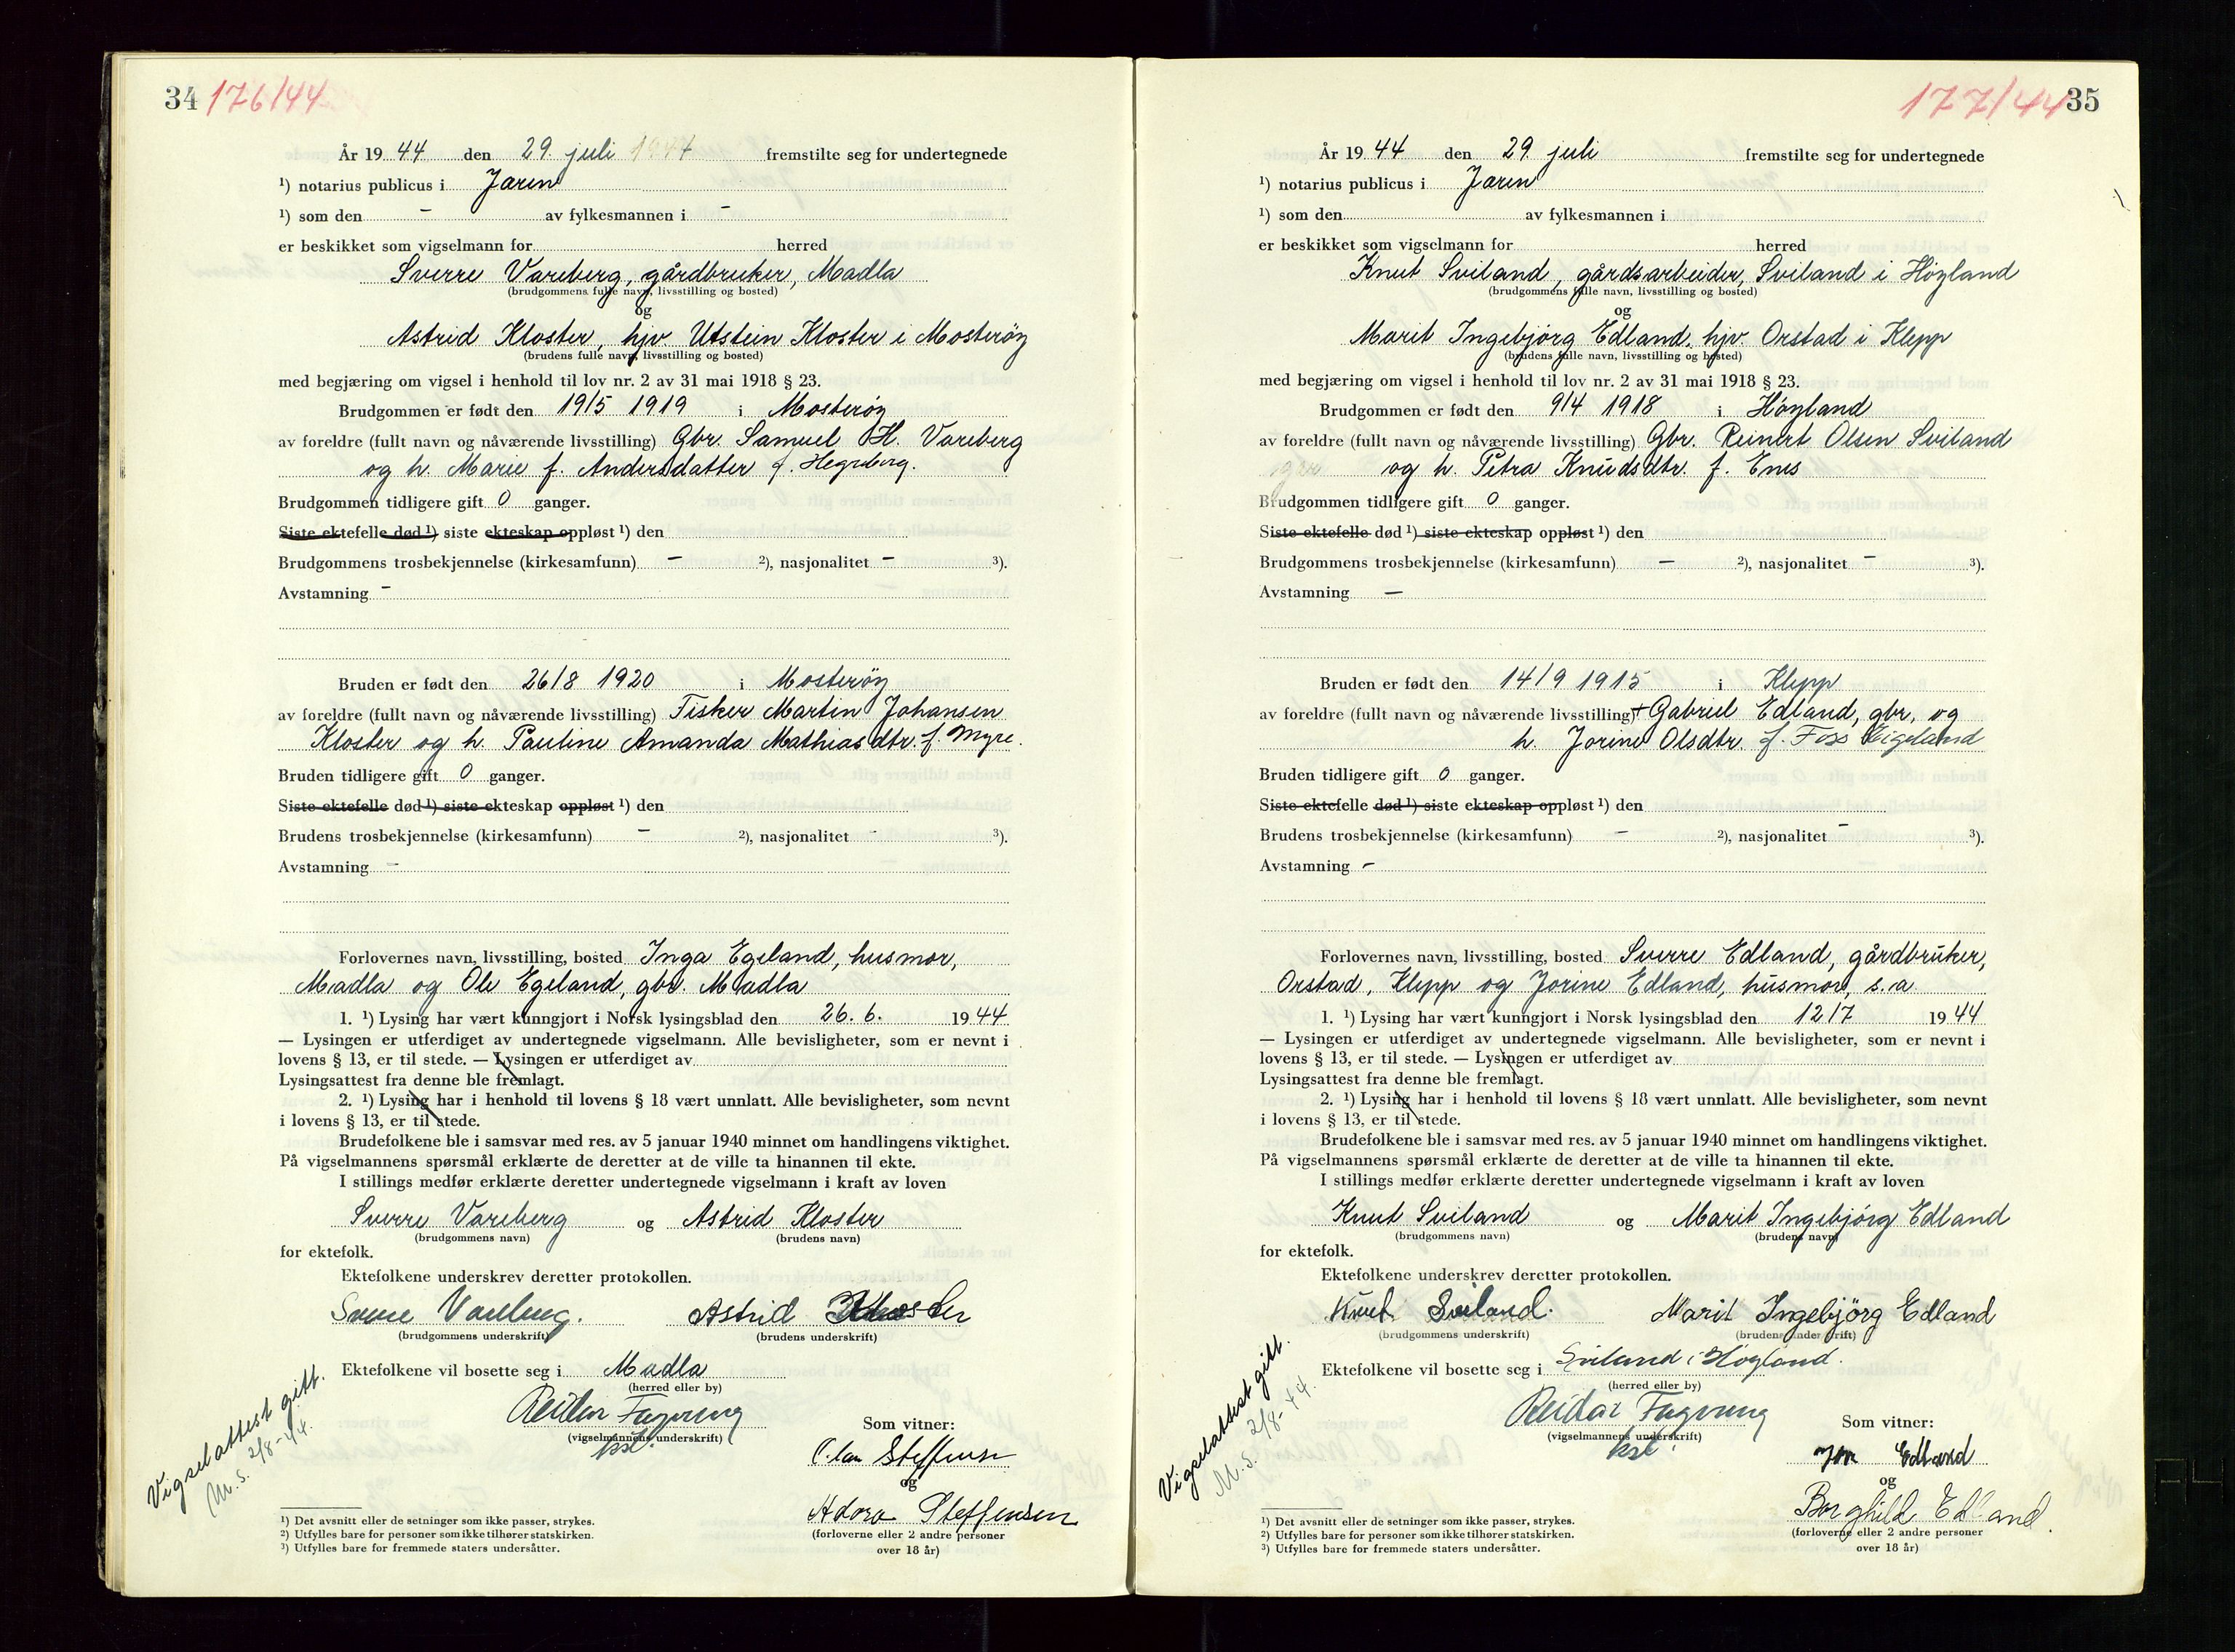 34 176/44
År 1944 den 29. juli 1944 fremstilte seg for undertegnede
¹) notarius publicus i Jæren
¹) som den - av fylkesmannen i -
er beskikket som vigselmann for herred
Sverre Vareberg, gårdbruker, Madla
(brudgommens fulle navn, livsstilling og bosted)
og
Astrid Kloster, hjv. Utstein Kloster i Mosterøy
(brudens fulle navn, livsstilling og bosted)
med begjæring om vigsel i henhold til lov nr. 2 av 31 mai 1918 § 23.
Brudgommen er født den 19/5 1919 i Mosterøy
av foreldre (fullt navn og nåværende livsstilling) Gbr. Samuel H. Vareberg
og h. Marie f. Andersdatter f. Hegreberg.
Brudgommen tidligere gift 0 ganger.
Siste ektefelle død ¹) siste ekteskap oppløst ¹) den
Brudgommens trosbekjennelse (kirkesamfunn) - ²), nasjonalitet - ³).
Avstamning -
Bruden er født den 26/8 1920 i Mosterøy
av foreldre (fullt navn og nåværende livsstilling) Fisker Martin Johansen
Kloster og h. Pauline Amanda Mathiasdtr. f. Myre.
Bruden tidligere gift 0 ganger.
Siste ektefelle død ¹) siste ekteskap oppløst ¹) den
Brudens trosbekjennelse (kirkesamfunn) - ²), nasjonalitet - ³).
Avstamning -
Forlovernes navn, livsstilling, bosted Inga Egeland, husmor,
Madla og Ole Egeland, gbr. Madla
1. ¹) Lysing har vært kunngjort i Norsk lysingsblad den 26. 6. 1944
— Lysingen er utferdiget av undertegnede vigselmann. Alle bevisligheter, som er nevnt i
lovens § 13, er til stede. — Lysingen er utferdiget av
Lysingsattest fra denne ble fremlagt.
2. ¹) Lysing har i henhold til lovens § 18 vært unnlatt. Alle bevisligheter, som nevnt
i lovens § 13, er til stede.
Brudefolkene ble i samsvar med res. av 5 januar 1940 minnet om handlingens viktighet.
På vigselmannens spørsmål erklærte de deretter at de ville ta hinannen til ekte.
I stillings medfør erklærte deretter undertegnede vigselmann i kraft av loven
Sverre Vareberg og Astrid Kloster
(brudgommens navn) (brudens navn)
for ektefolk.
Ektefolkene underskrev deretter protokollen.
Sverre Vareberg. Astrid Kloster
(brudgommens underskrift) (brudens underskrift)
Ektefolkene vil bosette seg i Madla
(herred eller by)
Reidar Fagerung
(vigselmannens underskrift)
kst.
Som vitner:
Olav Steffensen
og
Adora Steffensen
(forloverne eller 2 andre personer
over 18 år)
Vigselattest gitt.
M.S. 2/8-44.
¹) Det avsnitt eller de setninger som ikke passer, strykes.
²) Utfylles bare for personer som ikke tilhører statskirken.
³) Utfylles bare for fremmede staters undersåtter.
177/44 35
År 1944 den 29. juli fremstilte seg for undertegnede
¹) notarius publicus i Jæren
¹) som den av fylkesmannen i
er beskikket som vigselmann for herred
Knut Sviland, gårdsarbeider, Sviland i Høyland
(brudgommens fulle navn, livsstilling og bosted)
og
Marit Ingebjørg Edland, hjv. Orstad i Klepp
(brudens fulle navn, livsstilling og bosted)
med begjæring om vigsel i henhold til lov nr. 2 av 31 mai 1918 § 23.
Brudgommen er født den 9/4 1918 i Høyland
av foreldre (fullt navn og nåværende livsstilling) Gbr. Reinert Olsen Sviland
og h. Petra Knudsdtr. f. Enes
Brudgommen tidligere gift 0 ganger.
Siste ektefelle død ¹) siste ekteskap oppløst ¹) den
Brudgommens trosbekjennelse (kirkesamfunn) - ²), nasjonalitet - ³).
Avstamning -
Bruden er født den 14/9 1915 i Klepp
av foreldre (fullt navn og nåværende livsstilling) + Gabriel Edland, gbr. og
h. Jorine Olsdtr. f. Foss Eigeland
Bruden tidligere gift 0 ganger.
Siste ektefelle død ¹) siste ekteskap oppløst ¹) den
Brudens trosbekjennelse (kirkesamfunn) - ²), nasjonalitet - ³).
Avstamning -
Forlovernes navn, livsstilling, bosted Sverre Edland, gårdbruker,
Orstad, Klepp og Jorine Edland, husmor, s.a
1. ¹) Lysing har vært kunngjort i Norsk lysingsblad den 12/7 1944
— Lysingen er utferdiget av undertegnede vigselmann. Alle bevisligheter, som er nevnt i
lovens § 13, er til stede. — Lysingen er utferdiget av
Lysingsattest fra denne ble fremlagt.
2. ¹) Lysing har i henhold til lovens § 18 vært unnlatt. Alle bevisligheter, som nevnt
i lovens § 13, er til stede.
Brudefolkene ble i samsvar med res. av 5 januar 1940 minnet om handlingens viktighet.
På vigselmannens spørsmål erklærte de deretter at de ville ta hinannen til ekte.
I stillings medfør erklærte deretter undertegnede vigselmann i kraft av loven
Knut Sviland og Marit Ingebjørg Edland
(brudgommens navn) (brudens navn)
for ektefolk.
Ektefolkene underskrev deretter protokollen.
Knut Sviland. Marit Ingebjörg Edland
(brudgommens underskrift) (brudens underskrift)
Ektefolkene vil bosette seg i Sviland i Høyland.
(herred eller by)
Reidar Fagerung
(vigselmannens underskrift)
kst.
Som vitner:
Jon Edland
og
Borghild Edland.
(forloverne eller 2 andre personer
over 18 år)
Vigselattest gitt.
M.S. 2/8-44.
¹) Det avsnitt eller de setninger som ikke passer, strykes.
²) Utfylles bare for personer som ikke tilhører statskirken.
³) Utfylles bare for fremmede staters undersåtter.